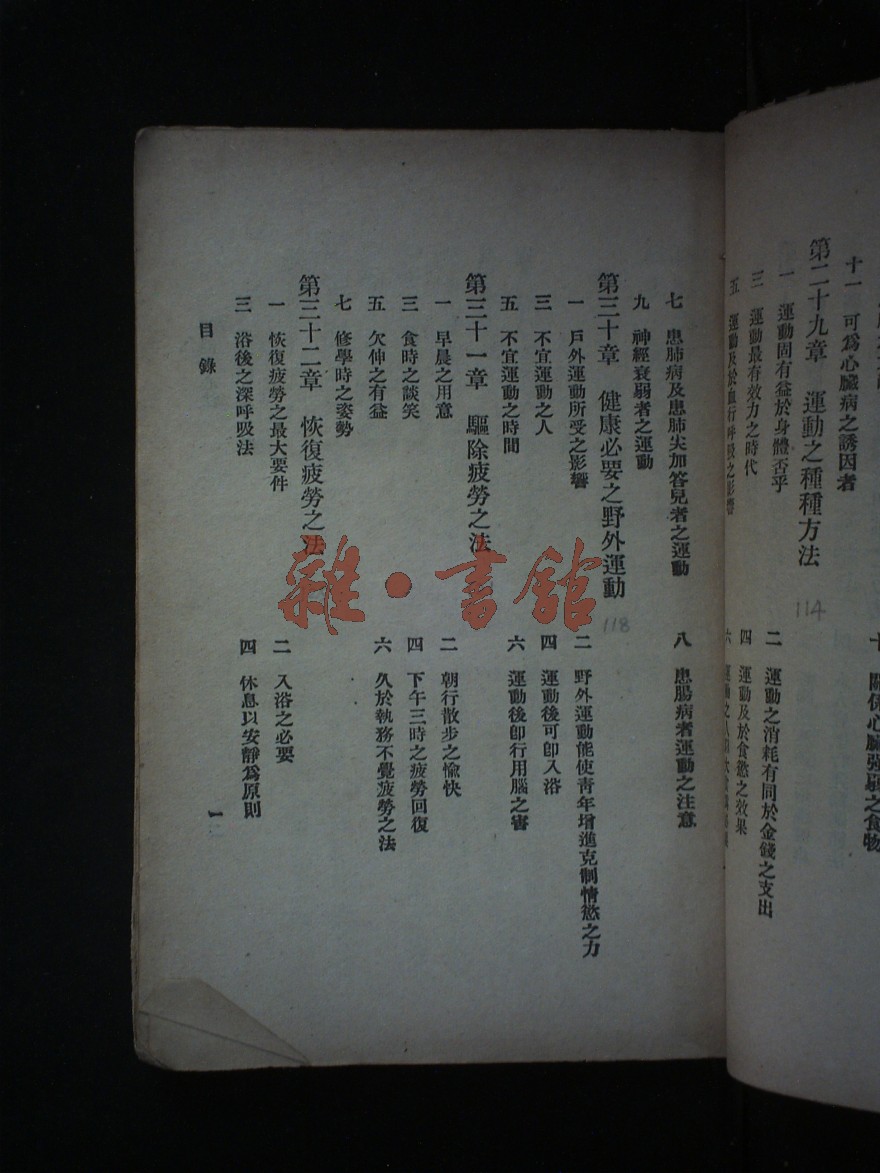 十 關係心臟強弱之食物
十一 可爲心臟病之誘因者
第二十九章 運動之種種方法
114
一 運動固有益於身體否乎
二 運動之消耗有同於金錢之支出
三 運動最有效力之時代
四 運動及於食慾之效果
五 運動及於血行呼吸之影響
六
七 患肺病及患肺尖加答兒者之運動
八 患腸病者運動之注意
九 神經衰弱者之運動
第三十章 健康必要之野外運動
118
一 戶外運動所受之影響
二 野外運動能使青年增進克制情慾之力
三 不宜運動之人
四 運動後可卽入浴
五 不宜運動之時間
六 運動後卽行用腦之害
第三十一章 驅除疲勞之法
一 早晨之用意
二 朝行散步之愉快
三 食時之談笑
四 下午三時之疲勞回復
五 欠伸之有益
六 久於執務不覺疲勞之法
七 修學時之姿勢
第三十二章 恢復疲勞之法
一 恢復疲勞之最大要件
二 入浴之必要
三 浴後之深呼吸法
四 休息以安靜爲原則
目錄
雜·書館